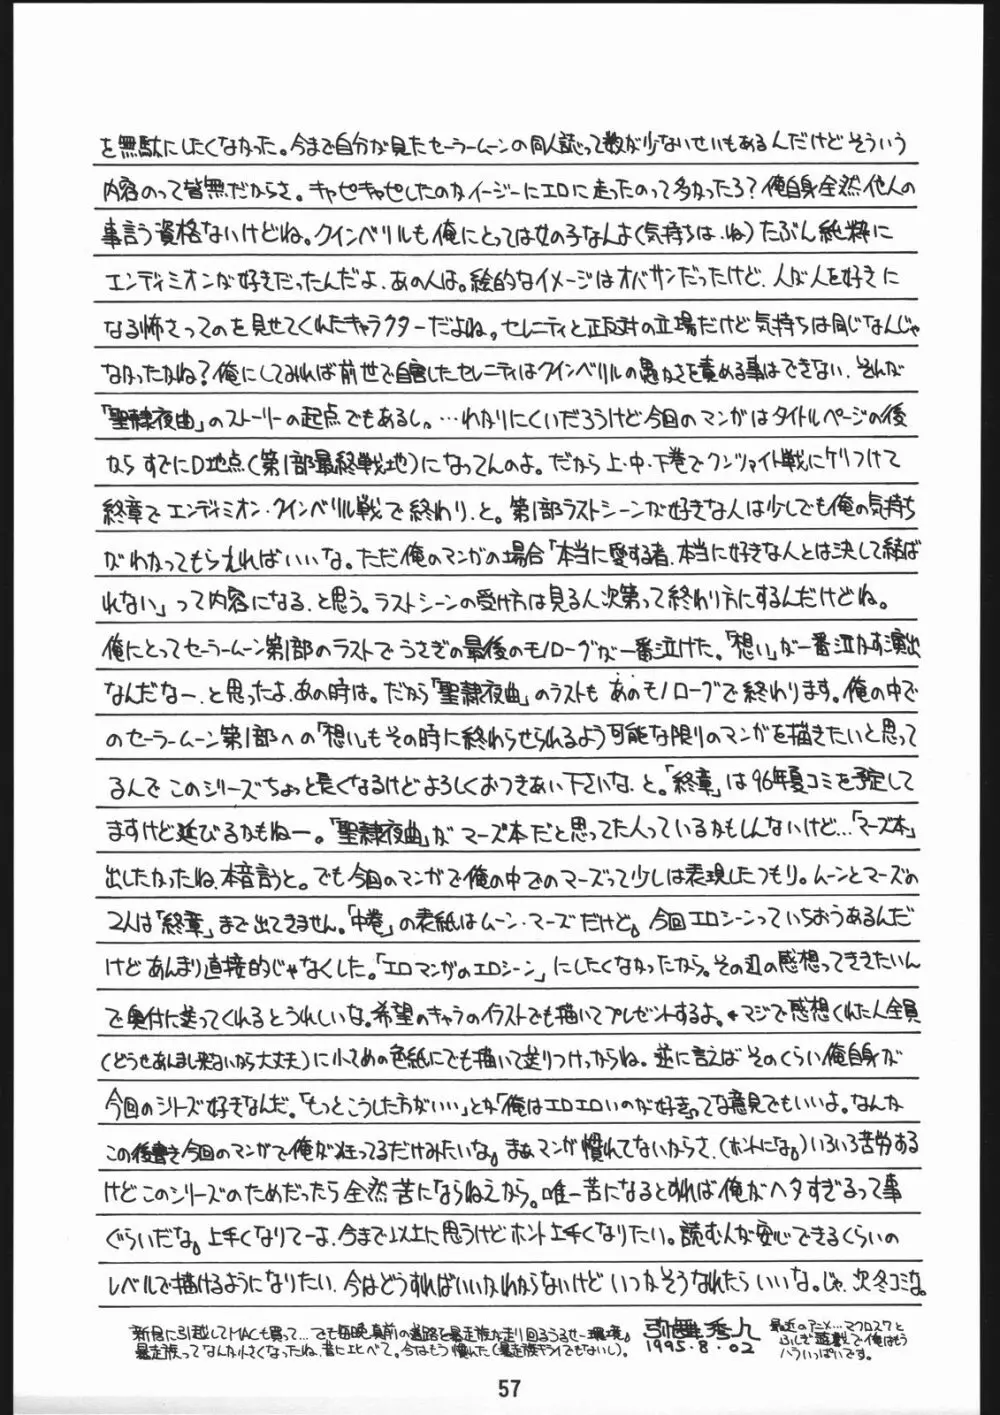 を無駄にしたくなかった。今まで自分が見たセーラームーンの同人誌って数が少ないせいもあるんだけどそういう
内容のって皆無だからさ。キャピキャピしたのかイージーにエロに走ったのって多かったろ？俺自身全然他人の
事言う資格ないけどね。クインベリルも俺にとっては女の子なんよ(気持ちは、ね)たぶん純粋に
エンディミオンが好きだったんだよ、あの人は。絵的なイメージはオバサンだったけど、人が人を好きに
なる怖さってのを見せてくれたキャラクターだよね。セレニティと正反対の立場だけど気持ちは同じなんじゃ
なかったかね？俺にしてみれば前世で自害したセレニティはクインベリルの愚かさを責める事はできない、それが
「聖隷夜曲」のストーリーの起点でもあるし。…わかりにくいだろうけど今回のマンガはタイトルページの後
ならすでにD地点(第1部最終戦地)になってんのよ。だから上・中・下巻でクンツァイト戦にケリつけて
終章でエンディミオン・クインベリル戦で終わり、と。第1部ラストシーンが好きな人は少しでも俺の気持ち
がわかってもらえればいいな。ただ俺のマンガの場合「本当に愛する者、本当に好きな人とは決して結ば
れない」って内容になる、と思う。ラストシーンの受け方は見る人次第って終わり方にするんだけどね。
俺にとってセーラームーン第1部のラストでうさぎの最後のモノローグが一番泣けた。「想い」が一番泣かす演出
なんだなー、と思ったよ、あの時は。だから「聖隷夜曲」のラストもあのモノローグで終わります。俺の中で
のセーラームーン第1部への「想い」もその時に終わらせられるよう可能な限りのマンガを描きたいと思って
るんでこのシリーズちょっと長くなるけどよろしくおつきあい下さいな、と。「終章」は96年夏コミを予定して
ますけど延びるかもねー。「聖隷夜曲」がマーズ本だと思ってた人っているかもしんないけど…「マーズ本」
出したかったね、本音言うと。でも今回のマンガで俺の中でのマーズって少しは表現したつもり。ムーンとマーズの
2人は「終章」まで出てきません。「中巻」の表紙はムーン・マーズだけど。今回エロシーンっていちおうあるんだ
けどあんまり直接的じゃなくした。「エロマンガのエロシーン」にしたくなかったから。その辺の感想ってききたいん
で奥付に送ってくれるとうれしいな。希望のキャラのイラストでも描いてプレゼントするよ。←マジで感想くれた人全員
(どうせあんまし来ないから大丈夫)に小さめの色紙にでも描いて送りつけっからね。逆に言えばそのくらい俺自身が
今回のシリーズ好きなんだ。「もっとこうした方がいい」とか「俺はエロエロいのが好き」ってな意見でもいいよ。なんか
この後書き今回のマンガで俺が狂ってるだけみたいな。まぁマンガ慣れてないからさ、(ホントにな。)いろいろ苦労する
けどこのシリーズのためだったら全然苦にならねえから。唯一苦になるとすれば俺がヘタすぎるって事
ぐらいだな。上手くなりてーよ、今まで以上に思うけどホント上手くなりたい。読む人が安心できるくらいの
レベルで描けるようになりたい、今はどうすればいいかわからないけどいつかそうなれたらいいな。じゃ、次、冬コミな。
新居に引越してMACも買って…でも毎晩真前の道路を暴走族が走り回るうるせー環境。
暴走族ってなんか小さくなったね、昔に比べて。今はもう慣れた(暴走族キライでもないし)。
弥舞秀人
1995.8.02
最近のアニメ…マクロス7と
ふしぎ遊戯で俺はもう
ハラいっぱいです。
57